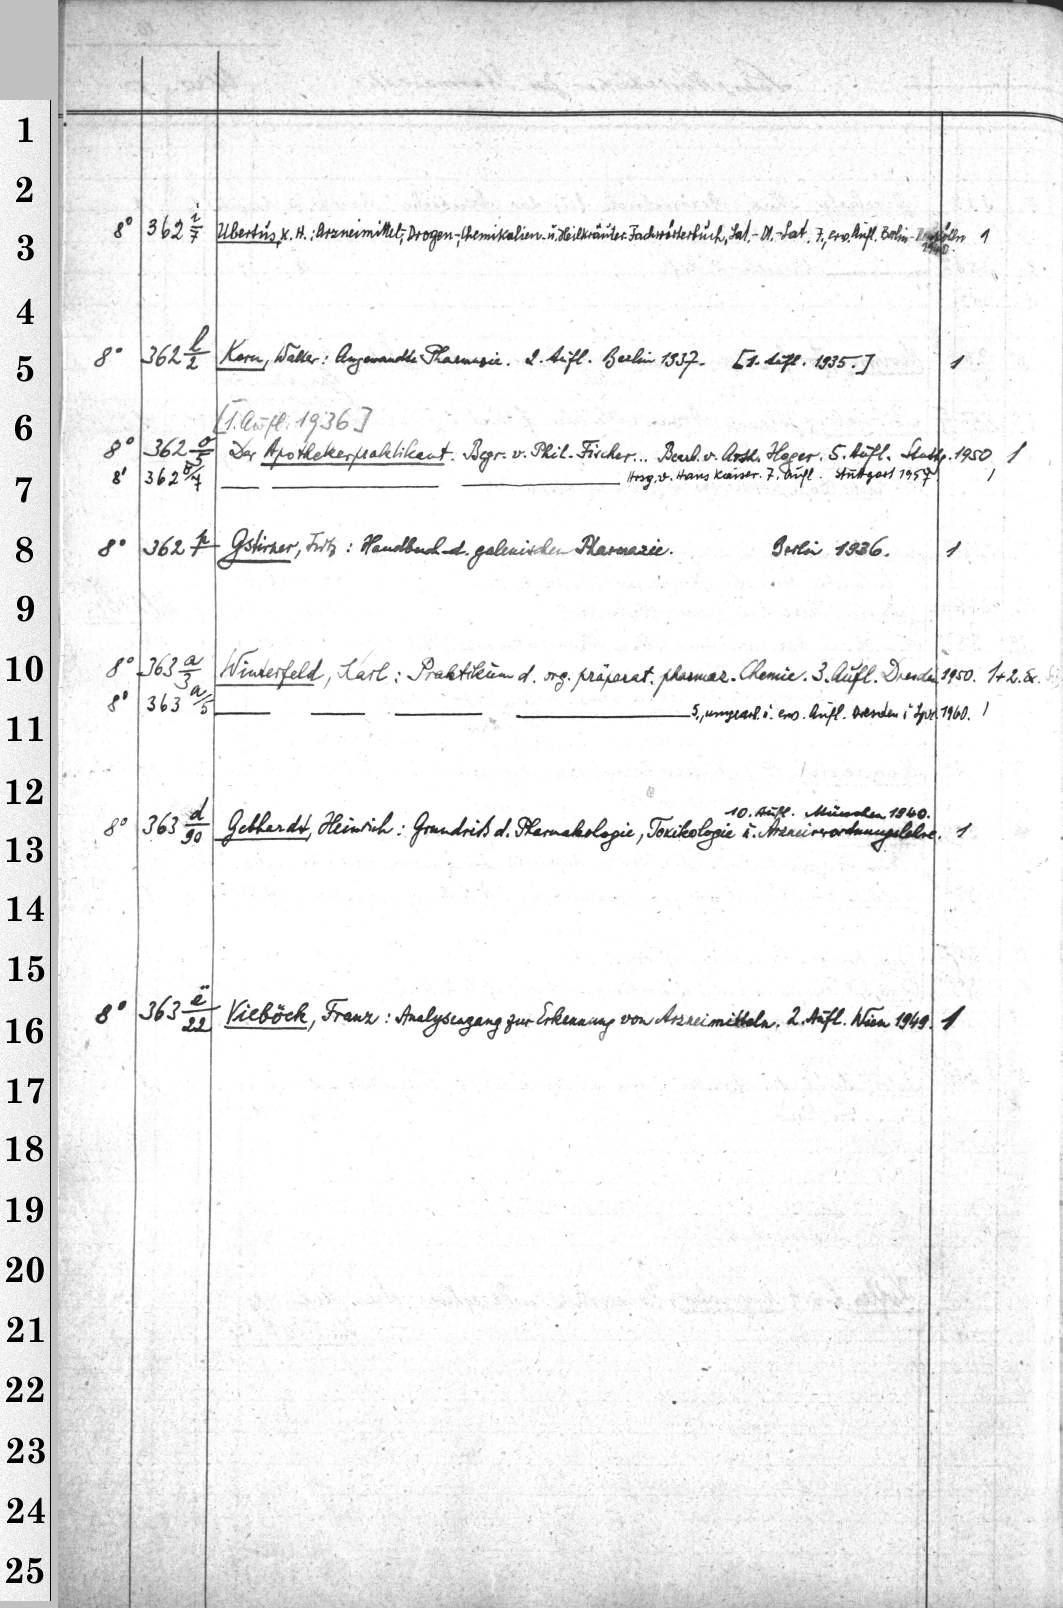 1
2
3 8° 362 i/7 Ubertus, K. H.: Arzneimittel-, Drogen-, Chemikalien- u. Heilkräuter Fachwörterbuch, Lat.-Dt.-Lat. 7., erw. Aufl. Berlin- 1940. 1
4
5 8° 362 l/2 Kern, Walter: Angewandte Pharmazie. 2. Aufl. Berlin 1937. [1. Aufl. 1935.] 1
6 [1. Aufl. 1936]
8° 362 o/5 Der Apothekerpraktikant. Begr. v. Phil. Fischer... Bearb. v. Hager. 5. Aufl. Stuttg. 1950 1
7 8° 362 o/7 — — — Hrsg. v. Hans Kaiser. 7. Aufl. Stuttgart 1957. 1
8 8° 362 p/7 Gstirner, Fritz: Handbuch d. galenischen Pharmazie. Berlin 1936. 1
9
10 8° 363 a/3 Winterfeld, Karl: Praktikum d. org. präparat. pharmaz. Chemie. 3. Aufl. Dresden 1950. 1+2. Ex.
11 8° 363 a/5 — — — — 5., umgearb. u. erw. Aufl. Dresden u. Lpz. 1960. 1
12
10. Aufl. München 1940.
13 8° 363 d/90 Gebhardt, Heinrich: Grundriß d. Pharmakologie, Toxikologie u. Arzneiverordnungslehre. 1
14
15
16 8° 363 ë/22 Vieböck, Franz: Analysengang zur Erkennung von Arzneimitteln. 2. Aufl. Wien 1949. 1
17
18
19
20
21
22
23
24
25